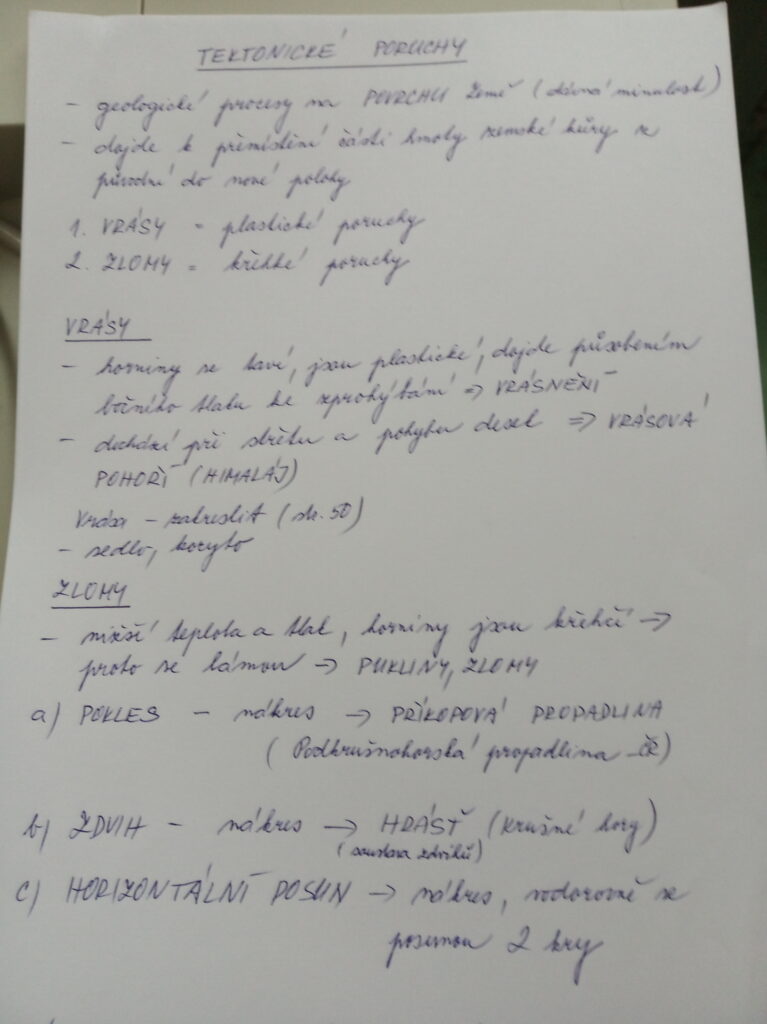 TEKTONICKÉ PORUCHY
- geologické procesy na POVRCHU Země (dávná minulost)
- dojde k přemístění části hmoty zemské kůry z
původní do nové polohy
1. VRÁSY = plastické poruchy
2. ZLOMY = křehké poruchy
VRÁSY
- horniny se taví, jsou plastické, dojde působením
bočního tlaku ke zprohýbání => VRÁSNĚNÍ
- dochází při střetu a pohybu desek => VRÁSOVÁ
POHOŘÍ (HIMALÁJ)
Vrása - zakreslit (str. 50)
- sedlo, koryto
ZLOMY
- nižší teplota a tlak, horniny jsou křehčí →
proto se lámou → PUKLINY, ZLOMY
a) POKLES - nákres → PŘÍKOPOVÁ PROPADLINA
(Podkrušnohorská propadlina - ČR)
b) ZDVIH - nákres → HRÁSŤ (Krušné hory)
(soustava zdvihů)
c) HORIZONTÁLNÍ POSUN → nákres, vodorovně se
posunou 2 kry